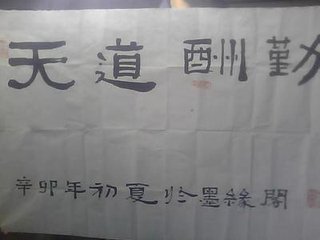 天道酬勤
辛卯年初夏於墨緣閣